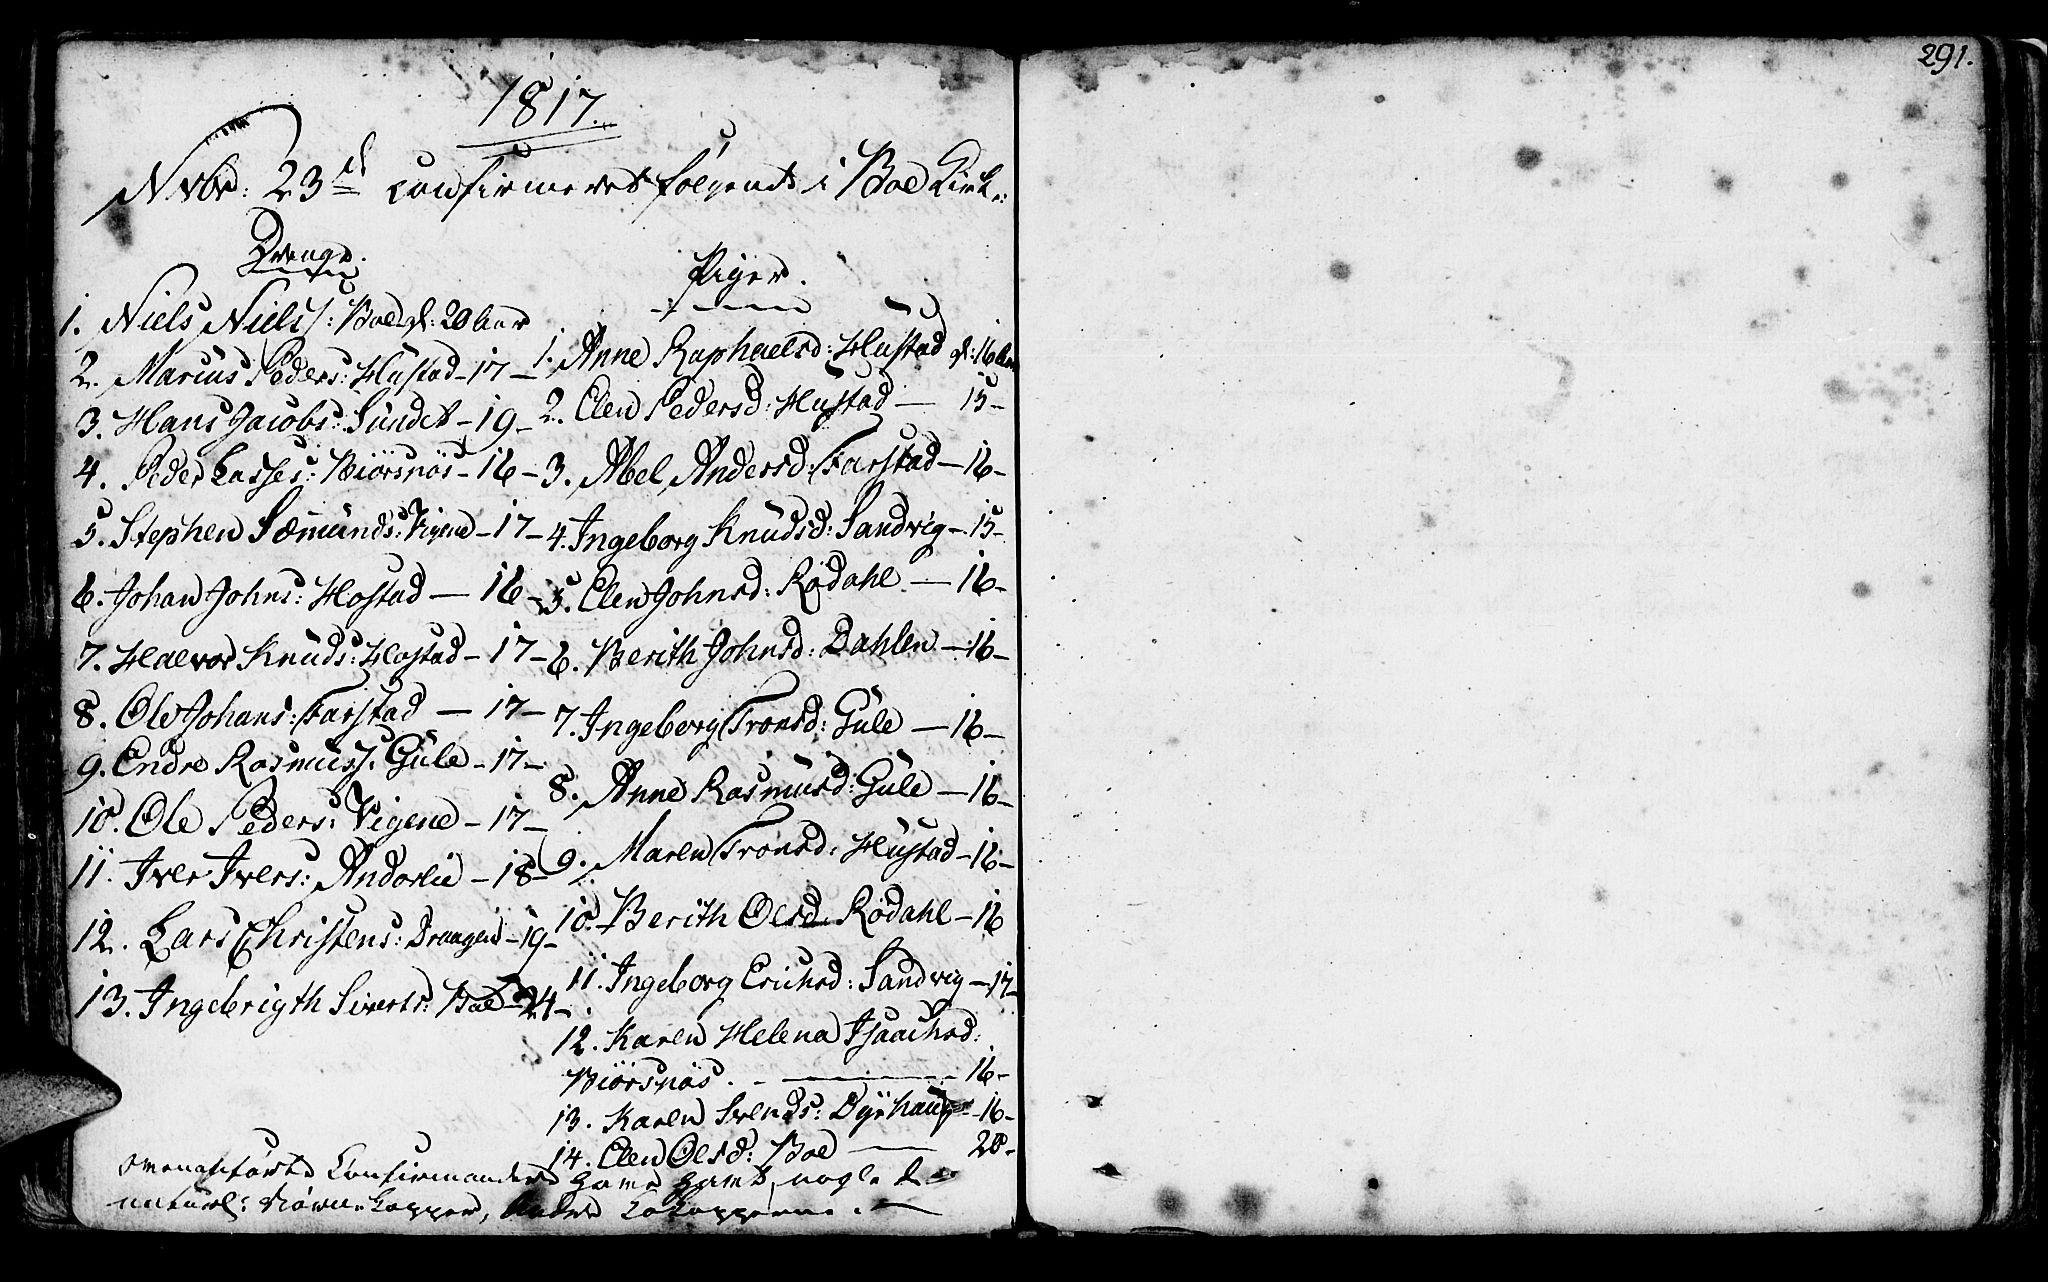 291.
1817.
Nvbr: 23d confirmeret følgende i Boe Kirke:
Drenge.
1. Niels Niels/: Boe gl: 20 Aar
2. Marius Peders: Hustad - 17 -
3. Hans Jacobs: Sundet - 19 -
4. Peder Lasses: Biörsnös - 16 -
5. Stephen Sæmunds: Vigene - 17 -
6. Johan Johns: Hostad - 16 -
7. Halvor Knuds: Hostad - 17 -
8. Ole Johans: Farstad - 17 -
9. Endre Rasmuss: Gule - 17 -
10. Ole Peders: Vigene - 17 -
11. Iver Ivers: Andorlie - 18 -
12. Lars Christens: Draagen - 19 -
13. Ingebrigth Siverts: Boe - 24 -
Piger.
1. Anne Raphaelsd: Hustad gl: 16 Aar
2. Elen Pedersd: Hustad - 15 -
3. Abel Andersd: Farstad - 16 -
4. Ingeborg Knudsd: Sandvig - 15 -
5. Elen Johnsd: Rødahl - 16 -
6. Berith Johnsd: Dahlen - 16 -
7. Ingeborg Tronsd: Gule - 16 -
8. Anne Rasmusd: Gule - 16 -
9. Maren Tronsd: Hustad - 16 -
10. Berith Olsd: Rødahl - 16
11. Ingeborg Erichsd: Sandvig - 17 -
12. Karen Helena Isaachsd:
Biörsnös. - 16 -
13. Karen Svends: Dyrhaug - 16 -
14. Elen Olsd: Boe - 20 -
Ovenanførte Confirmander have havt, nogle de
naturl: Børnekopper, andre Kokopperne. -